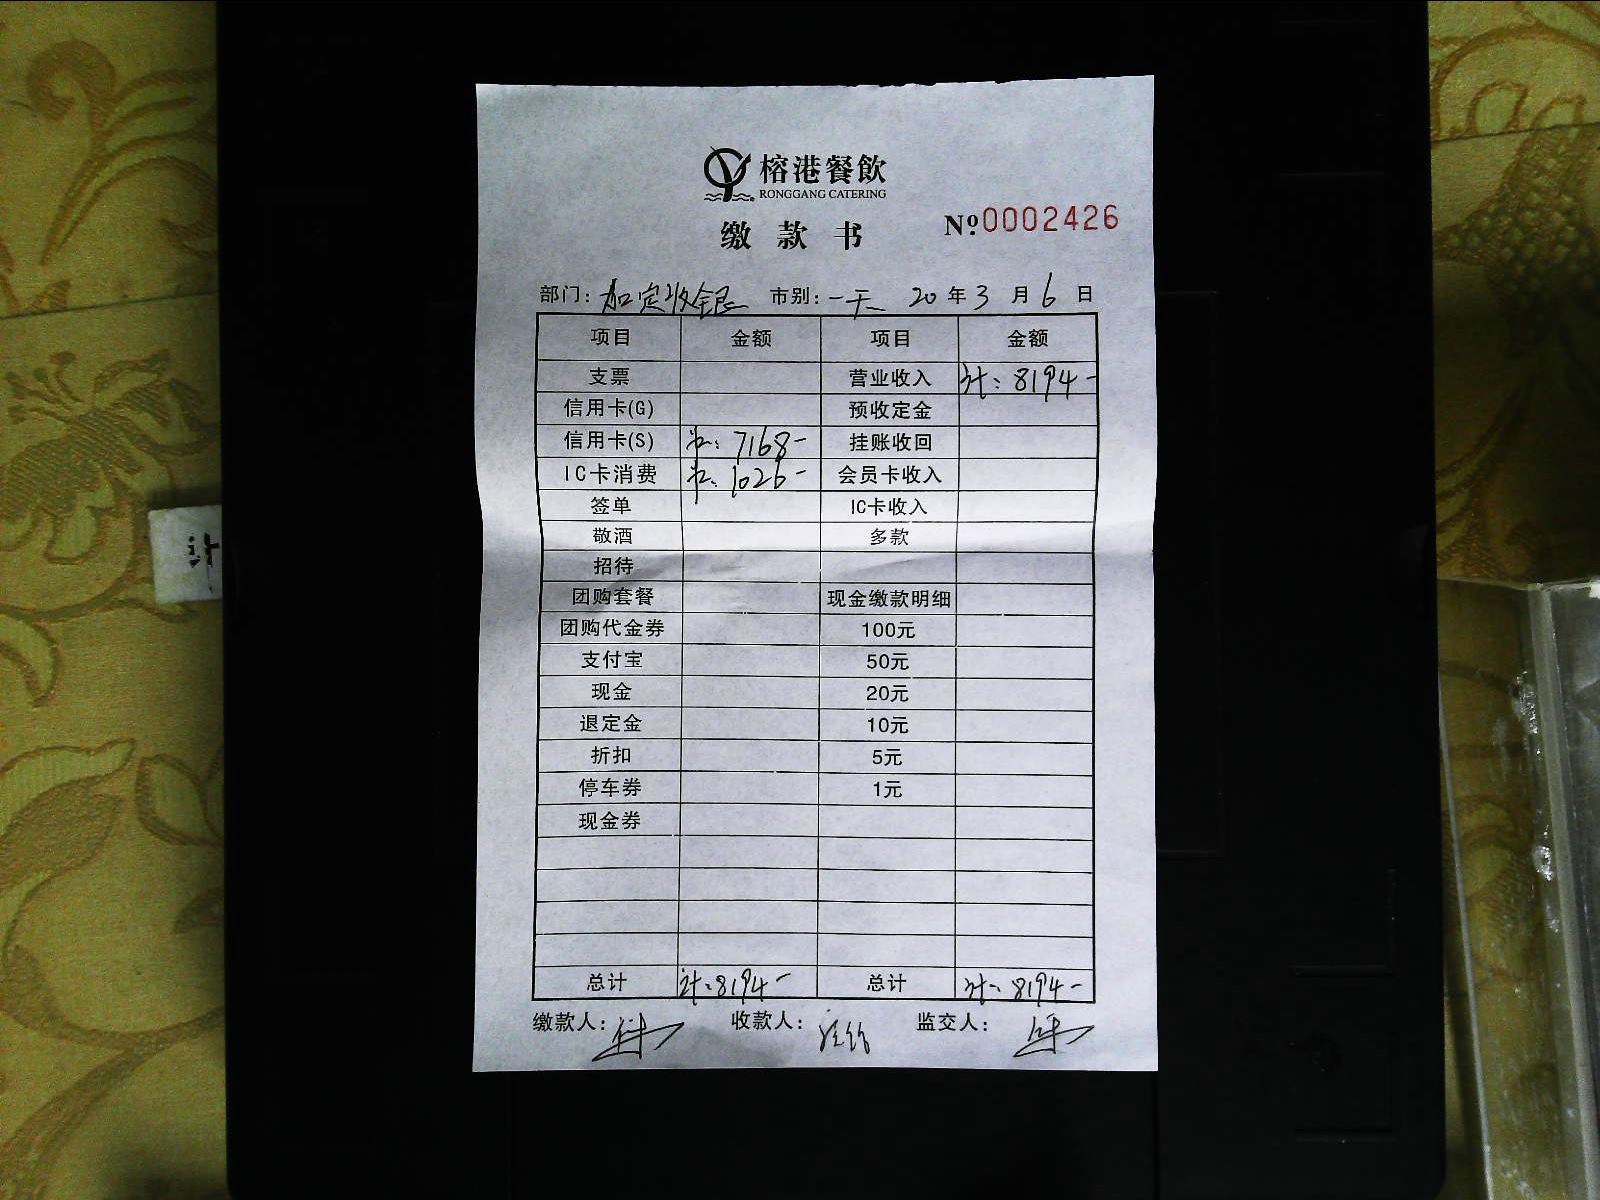 榕港餐飲
RONGGANG CATERING
缴款书 №0002426
部门: 加定收银 市别: 一天 20年3月6日
项目 金额 项目 金额
支票 营业收入 计: 8194-
信用卡(G) 预收定金
信用卡(S) 7168- 挂账收回
IC卡消费 1026- 会员卡收入
签单 IC卡收入
敬酒 多款
招待
团购套餐 现金缴款明细
团购代金券 100元
支付宝 50元
现金 20元
退定金 10元
折扣 5元
停车券 1元
现金券
总计 计: 8194- 总计 计: 8194-
缴款人: 收款人: 监交人:
计